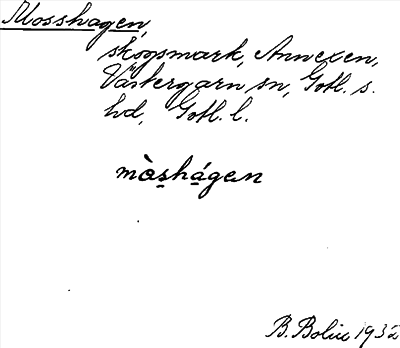 Mosshagen,
skogsmark, Annexen,
Västergarn sn, Gotl. s.
hd, Gotl. l.
mòs̲há̲gen
B. Bolin 1932